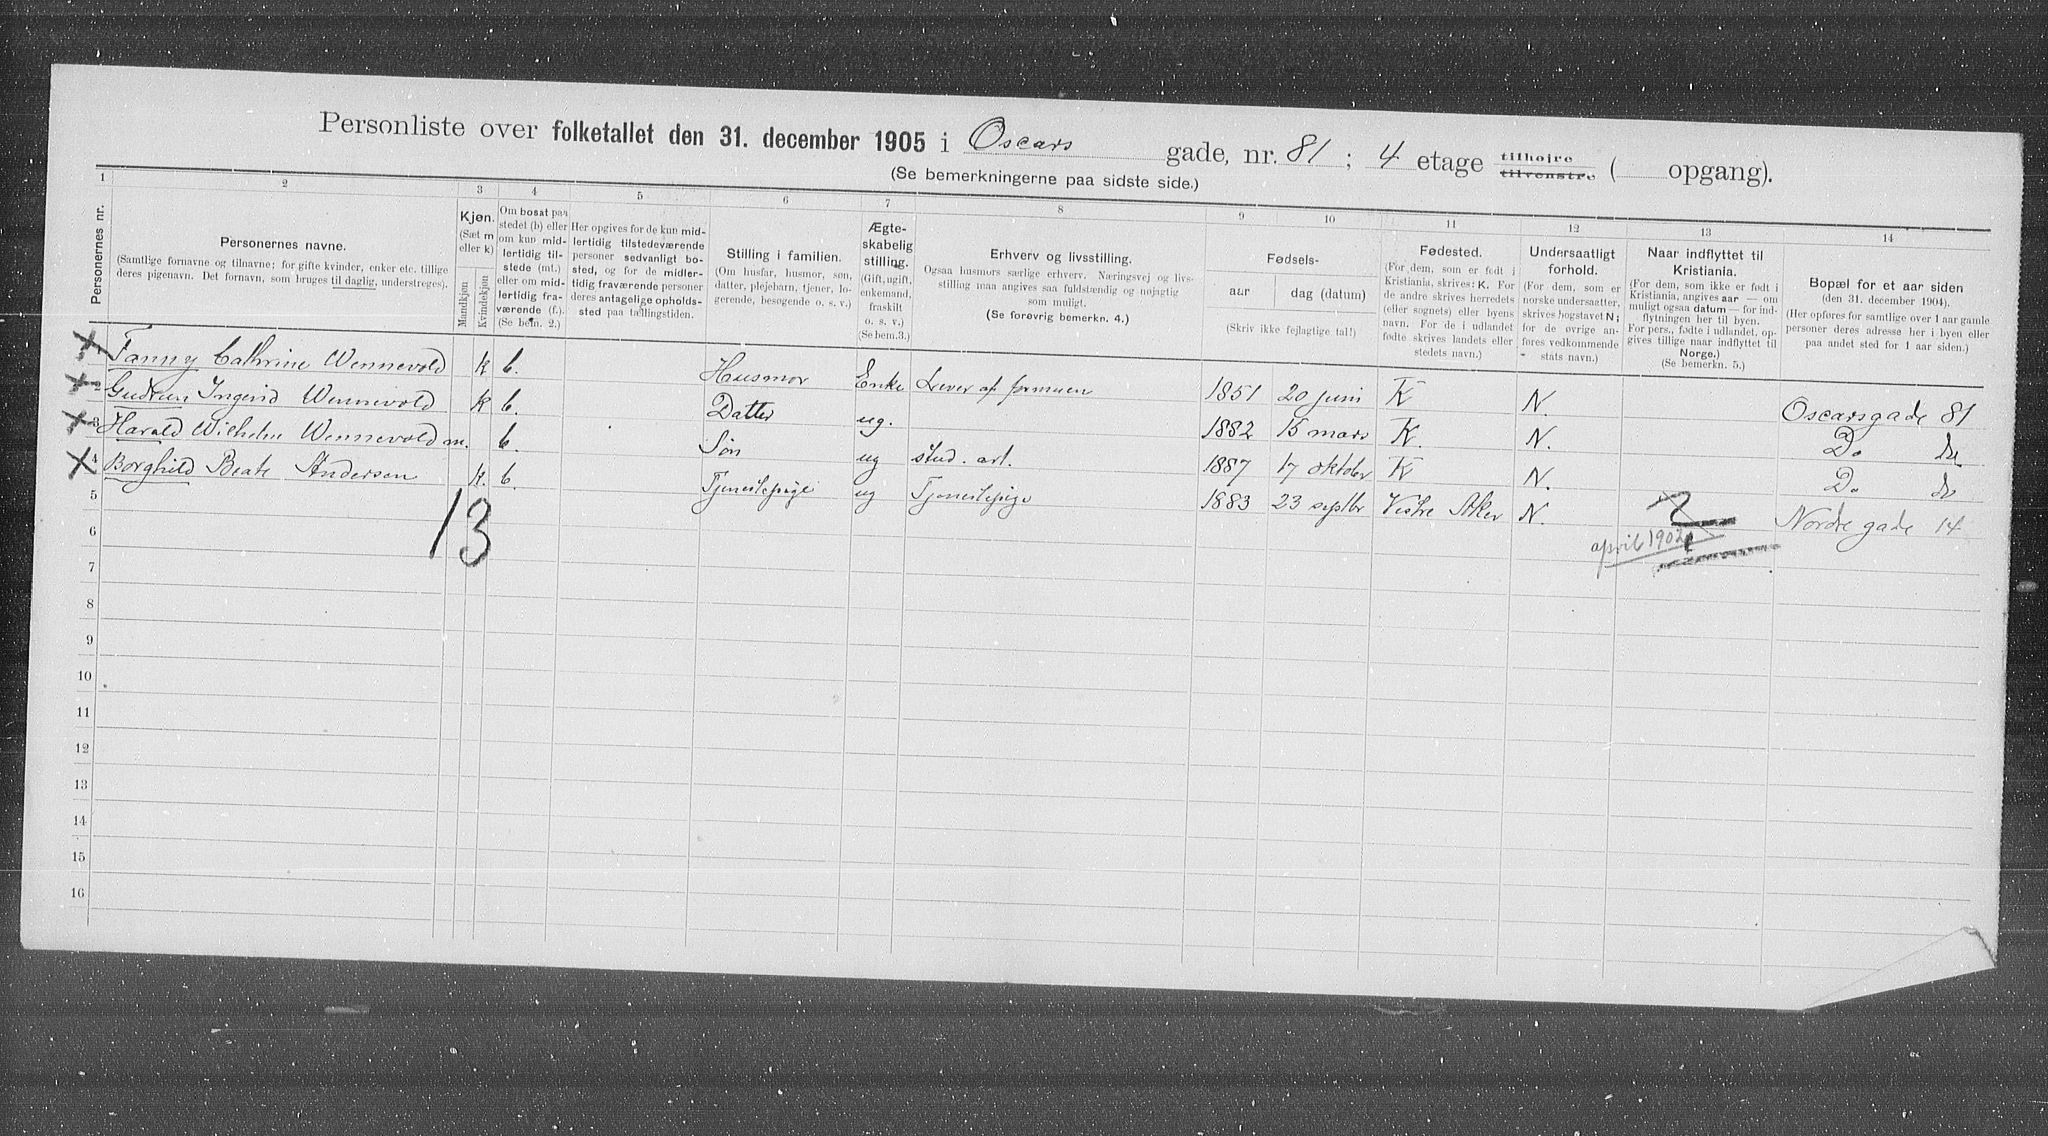 Personliste over folketallet den 31. december 1905 i Oscars gade, nr. 81; 4 etage tilhoire tilvenstre ( opgang).
(Se bemerkningerne paa sidste side.)
1 2 3 4 5 6 7 8 9 10 11 12 13 14
Personernes nr.
Personernes navne.
(Samtlige fornavne og tilnavne; for gifte kvinder, enker etc. tillige
deres pigenavn. Det fornavn, som bruges til daglig, understreges).
Kjøn.
(Sæt m
eller k)
Mandkjøn
Kvindekjøn
Om bosat paa
stedet (b) eller
om kun mid-
lertidig til-
stede (mt.)
eller om mid-
lertidig fra-
værende (f.).
(Se bem. 2.)
Her opgives for de kun mid-
lertidig tilstedeværende
personer sedvanligt bo-
sted, og for de midler-
tidig fraværende personer
deres antagelige opholds-
sted paa tællingstiden.
Stilling i familien.
(Om husfar, husmor, søn,
datter, plejebarn, tjener, lo-
gerende, besøgende o. s. v.)
Ægte-
skabelig
stilling.
(Gift, ugift,
enkemand,
fraskilt
o. s. v.)
(Se bem. 3.)
Erhverv og livsstilling.
Ogsaa husmors særlige erhverv. Næringsvej og livs-
stilling maa angives saa fuldstændig og nøjagtig
som muligt.
(Se forøvrig bemerkn. 4.)
Fødsels-
aar
dag (datum)
(Skriv ikke fejlagtige tal!)
Fødested.
(For dem, som er født i
Kristiania, skrives: K. For
de andre skrives herredets
(eller sognets) eller byens
navn. For de i udlandet
fødte skrives landets eller
stedets navn.)
Undersaatligt
forhold.
(For dem, som er
norske undersaatter,
skrives bogstavet N;
for de øvrige an-
føres vedkommende
stats navn.)
Naar indflyttet til
Kristiania.
(For dem, som ikke er født i
Kristiania, angives aar — om
muligt ogsaa datum — for ind-
flytningen her til byen.
For pers., fødte i udlandet, op-
gives tillige naar indflyttet til
Norge.)
(Se bemerkn. 5.)
Bopæl for et aar siden
(den 31. december 1904).
(Her opføres for samtlige over 1 aar gamle
personer deres adresse her i byen eller
paa andet sted for 1 aar siden.)
1 Fanny Cathrine Wennevold k b. Husmor Enke Lever af formuen 1851 20 juni K N. Oscarsgade 81
2 Gudrun Ingerid Wennevold k b. Datter ug. 1882 15 mars K N. Do do
3 Harald Wilhelm Wennevold m. b. Søn ug stud. art. 1887 17 oktober K N. Do do
4 Borghild Beate Andersen k. b. Tjenestepige ug Tjenestepige 1883 23 septbr Vestre Aker N. april 1902 Nordre gade 14
5
6
13
7
8
9
10
11
12
13
14
15
16